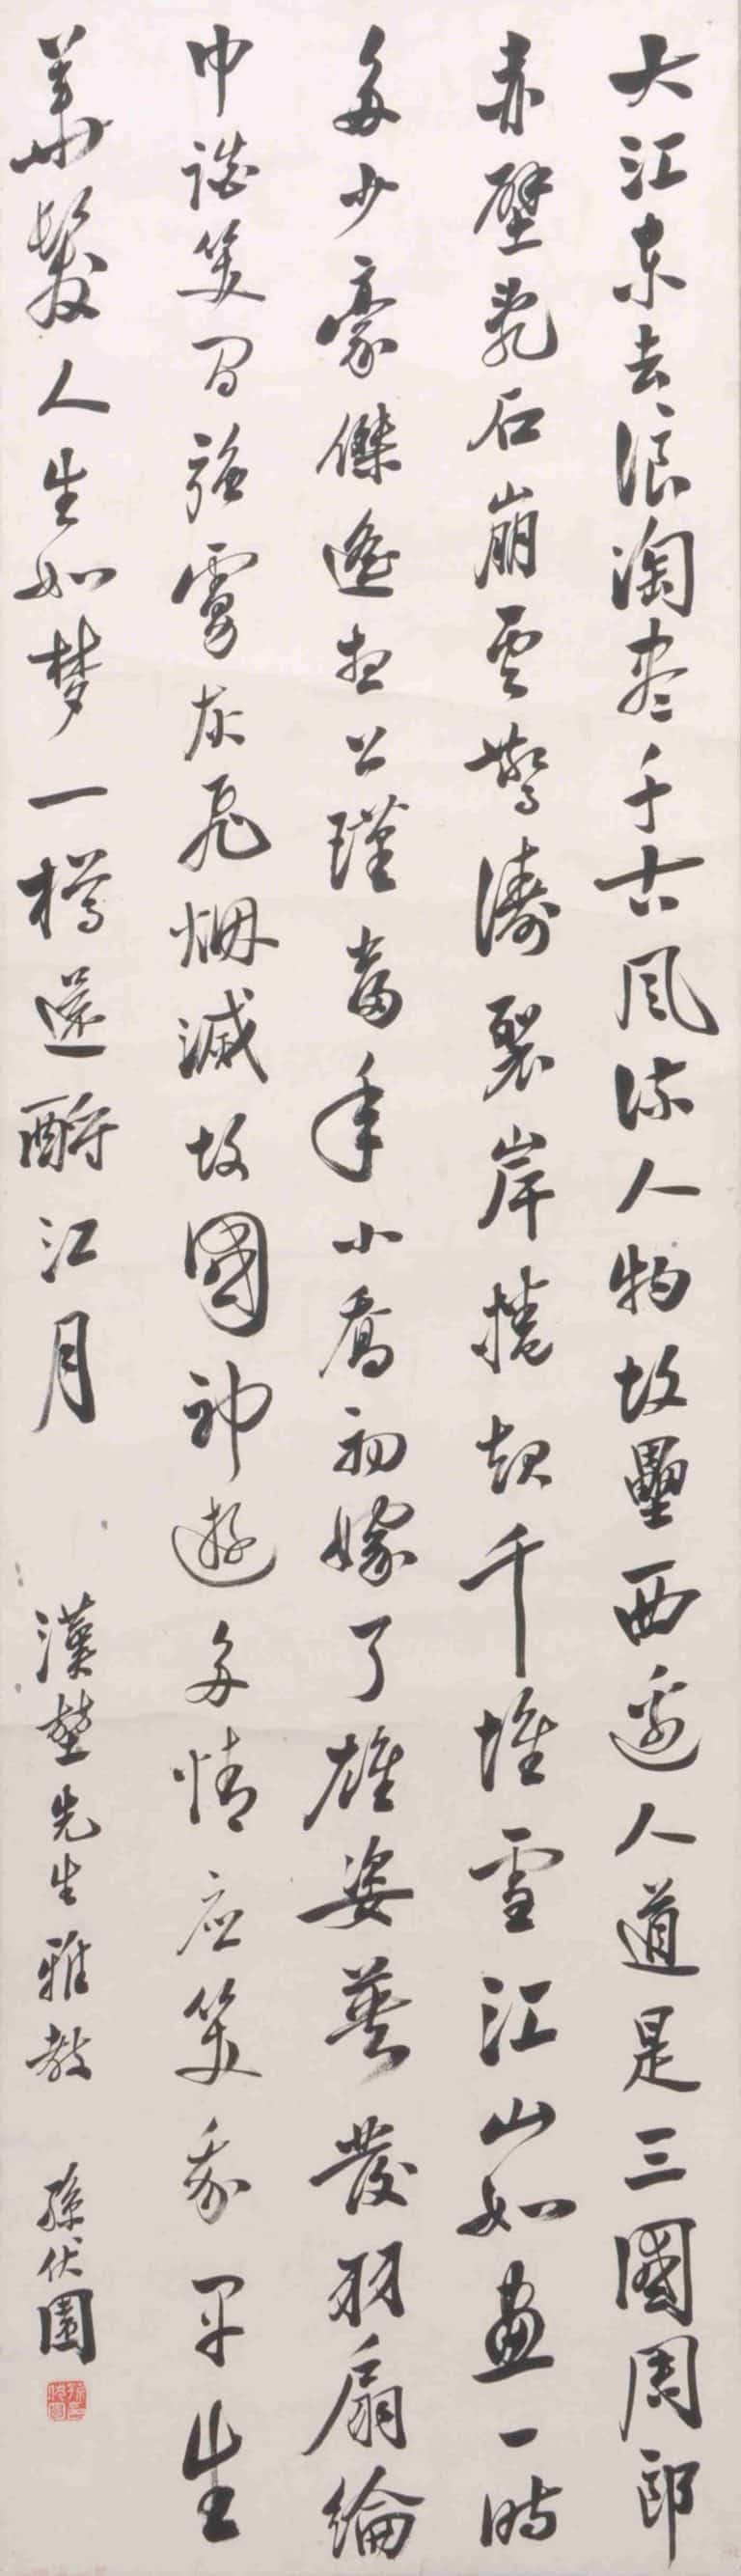 大江東去浪淘尽千古風流人物故壘西邊人道是三國周郎
赤壁亂石崩雲驚濤裂岸捲起千堆雪江山如畫一時
多少豪傑遙想公瑾當年小喬初嫁了雄姿英發羽扇綸
巾談笑間強虜灰飛烟滅故國神遊多情應笑我平生
華髮人生如梦一樽還酹江月
漢埜先生雅教
孫伏園